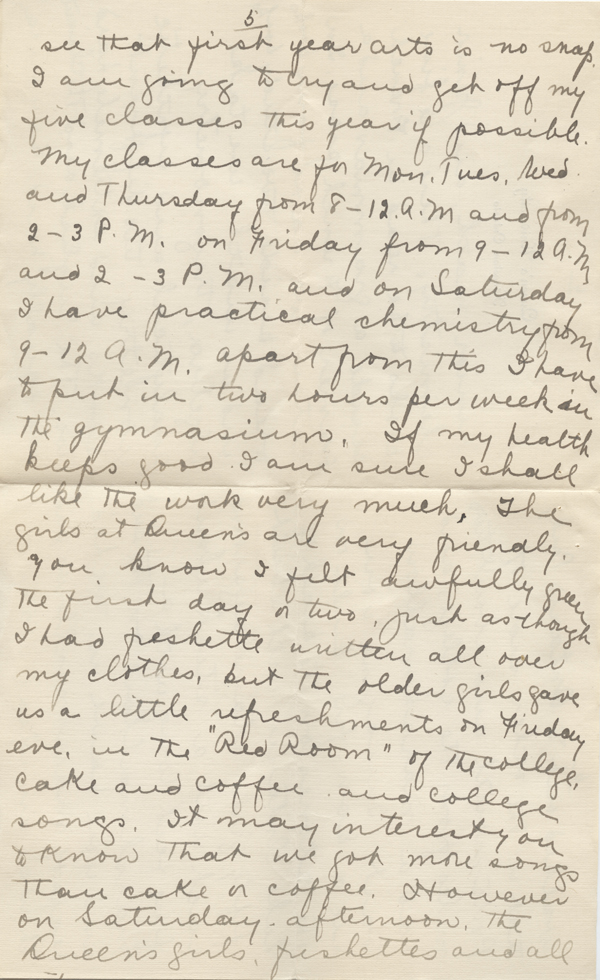 5
see that first year arts is no snap.
I am going to try and get off my
five classes this year if possible.
My classes are for Mon. Tues. Wed.
and Thursday from 8-12.A.M and from
2-3 P.M. on Friday from 9-12 A.M
and 2-3 P.M. and on Saturday
I have practical chemistry from
9-12 A.M. apart from this I have
to put in two hours per week in
the gymnasium. If my health
keeps good I am sure I shall
like the work very much. The
girls at Queen's are very friendly.
You know I felt awfully green
the first day or two, just as though
I had freshette written all over
my clothes, but the older girls gave
us a little refreshments on Friday
eve, in the "Red Room" of the college,
cake and coffee and college
songs. It may interest you
to know that we got more songs
than cake or coffee. However
on Saturday afternoon, the
Queen's girls, freshettes and all